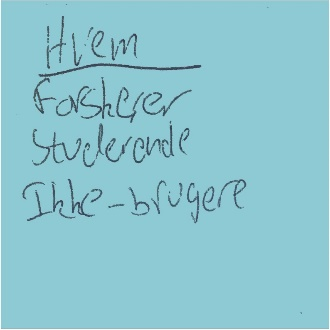 Hvem
Forskerer
Studerende
Ikke-brugere